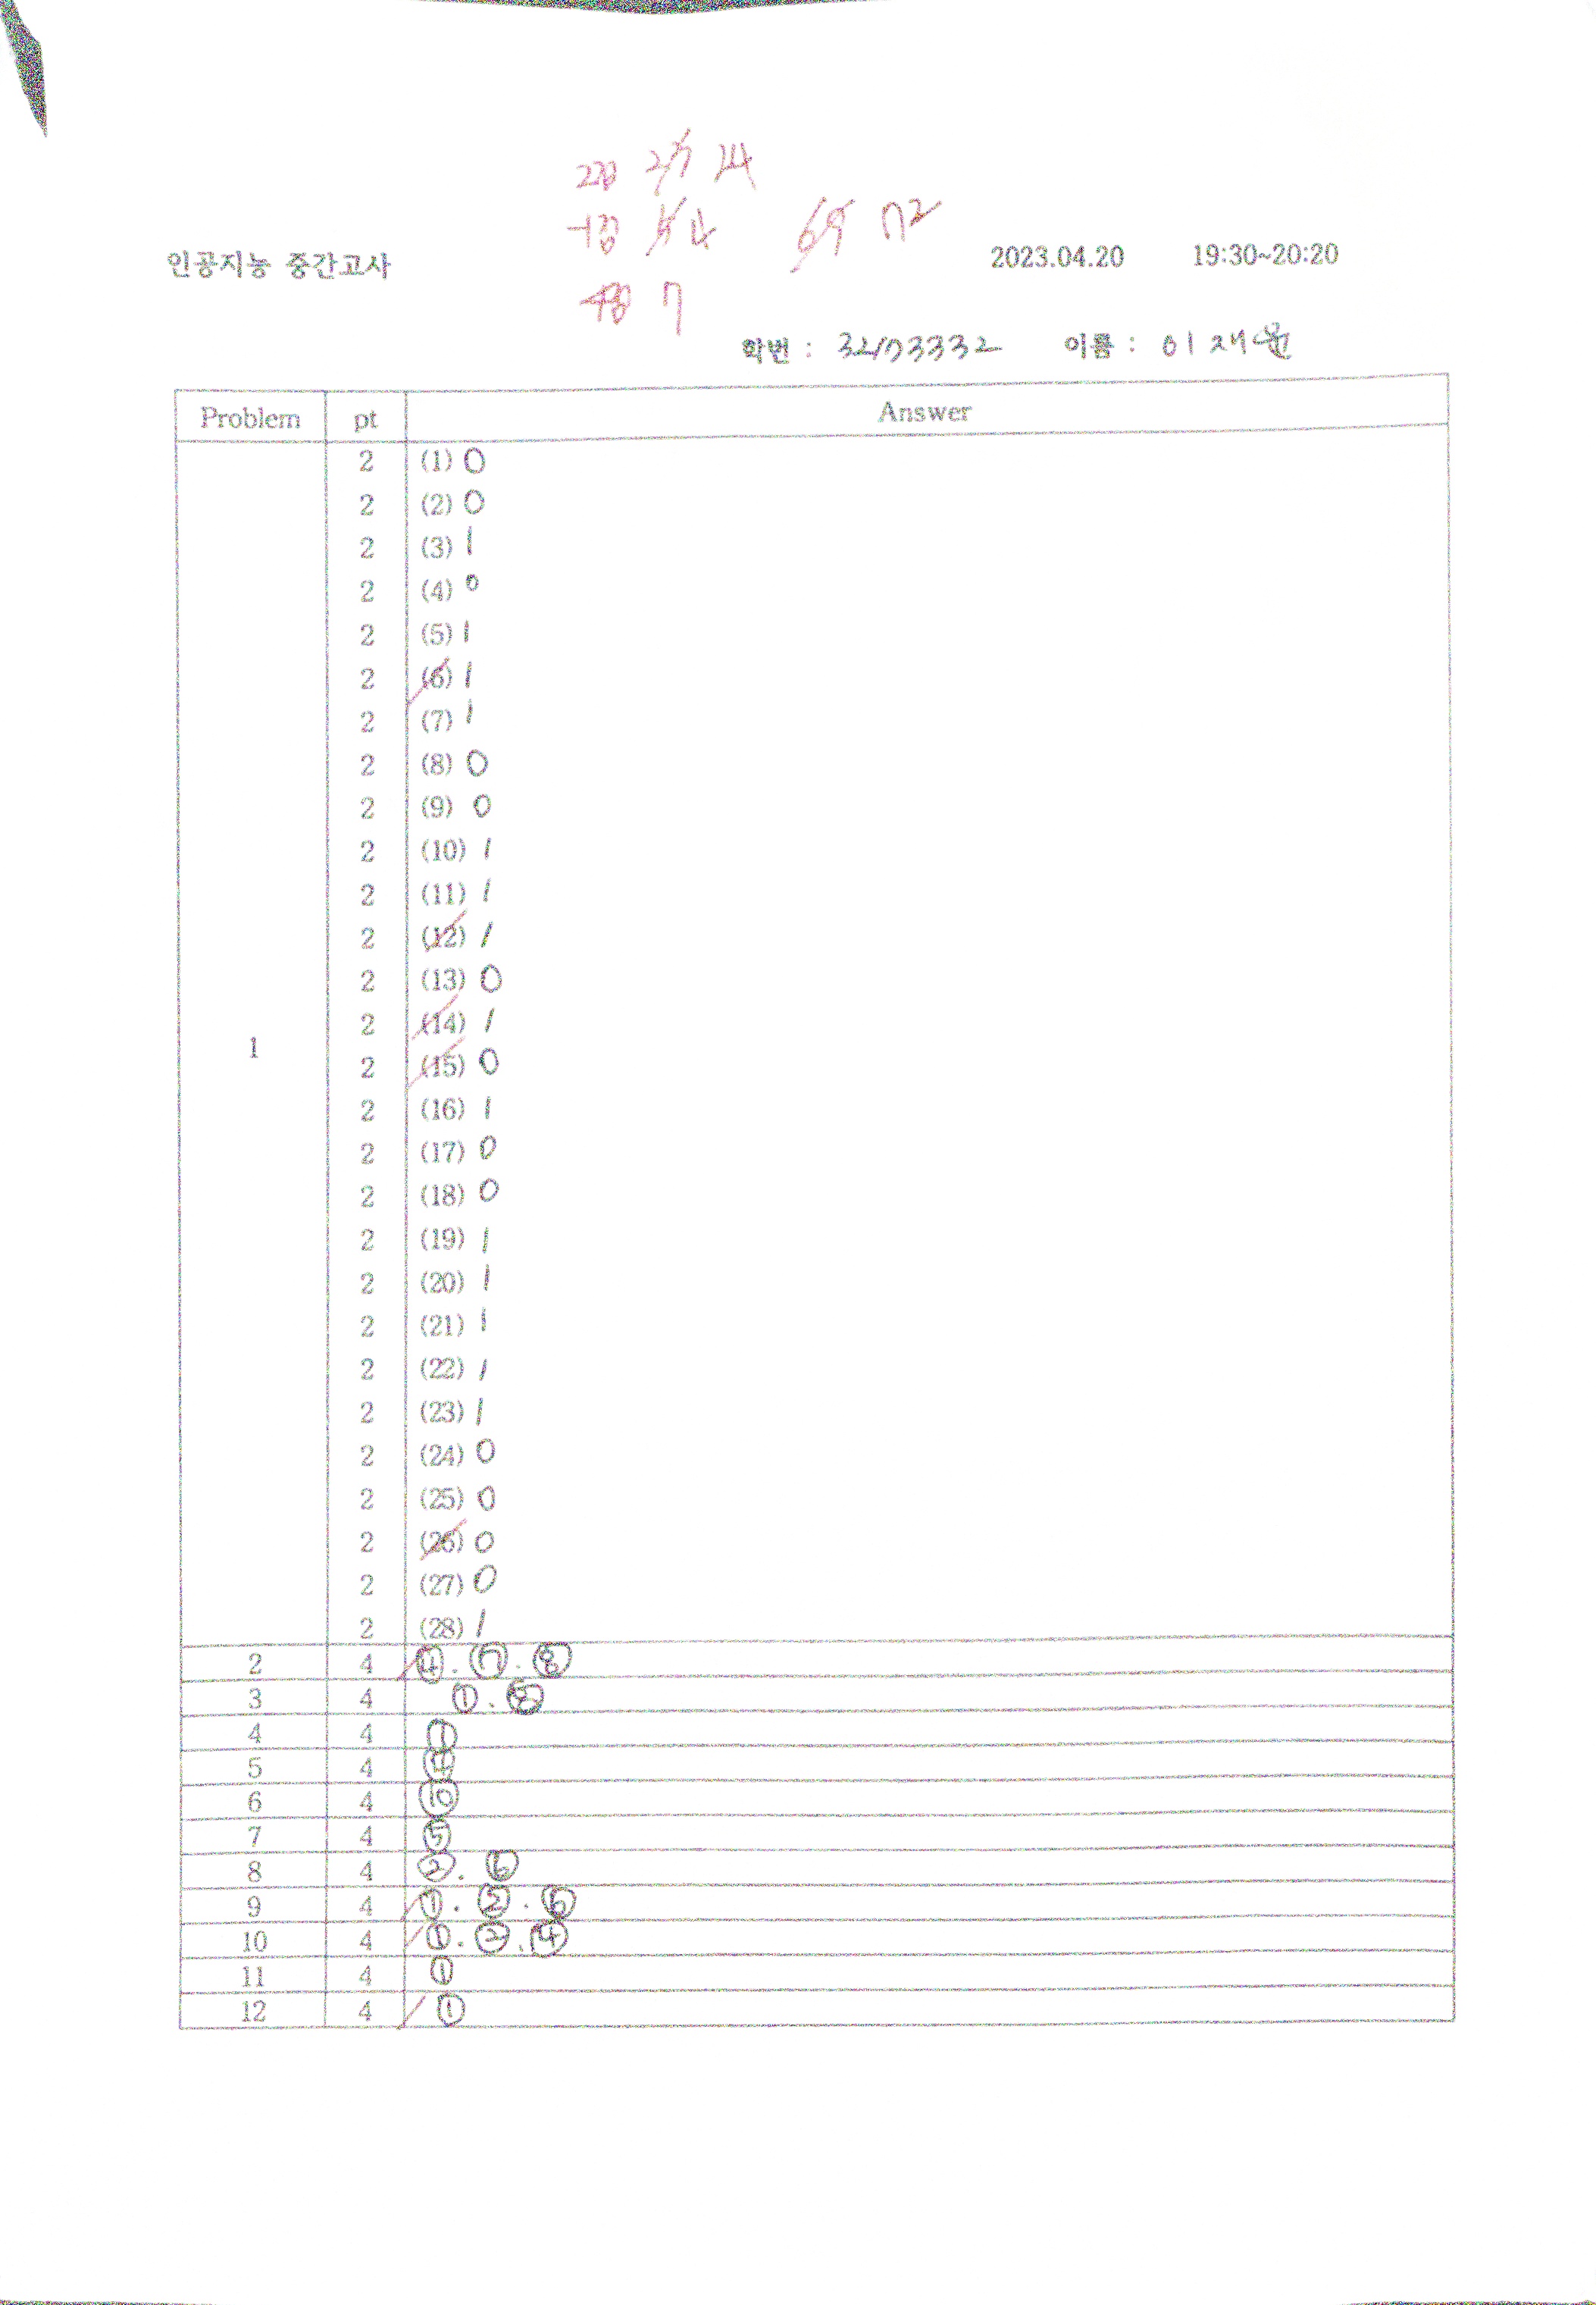 2점 27 24
-1점 4
69 72
인공지능 중간고사 2023.04.20 19:30~20:20
4점 7
학번 : 32193332 이름 : 이재윤
Problem pt Answer
2 (1) 0
2 (2) 0
2 (3) 1
2 (4) 0
2 (5) 1
2 (6) 1
2 (7) 1
2 (8) 0
2 (9) 0
2 (10) 1
2 (11) 1
2 (12) 1
2 (13) 0
2 (14) 1
1
2 (15) 0
2 (16) 1
2 (17) 0
2 (18) 0
2 (19) 1
2 (20) 1
2 (21) 1
2 (22) 1
2 (23) 1
2 (24) 0
2 (25) 0
2 (26) 0
2 (27) 0
2 (28) 1
2 4 ④. ⑦. ⑧
3 4 ①. ⑧
4 4 ①
5 4 ④
6 4 ⑩
7 4 ⑤
8 4 ②. ⑥
9 4 ①. ②. ⑥
10 4 ①. ③. ④
11 4 ①
12 4 ①